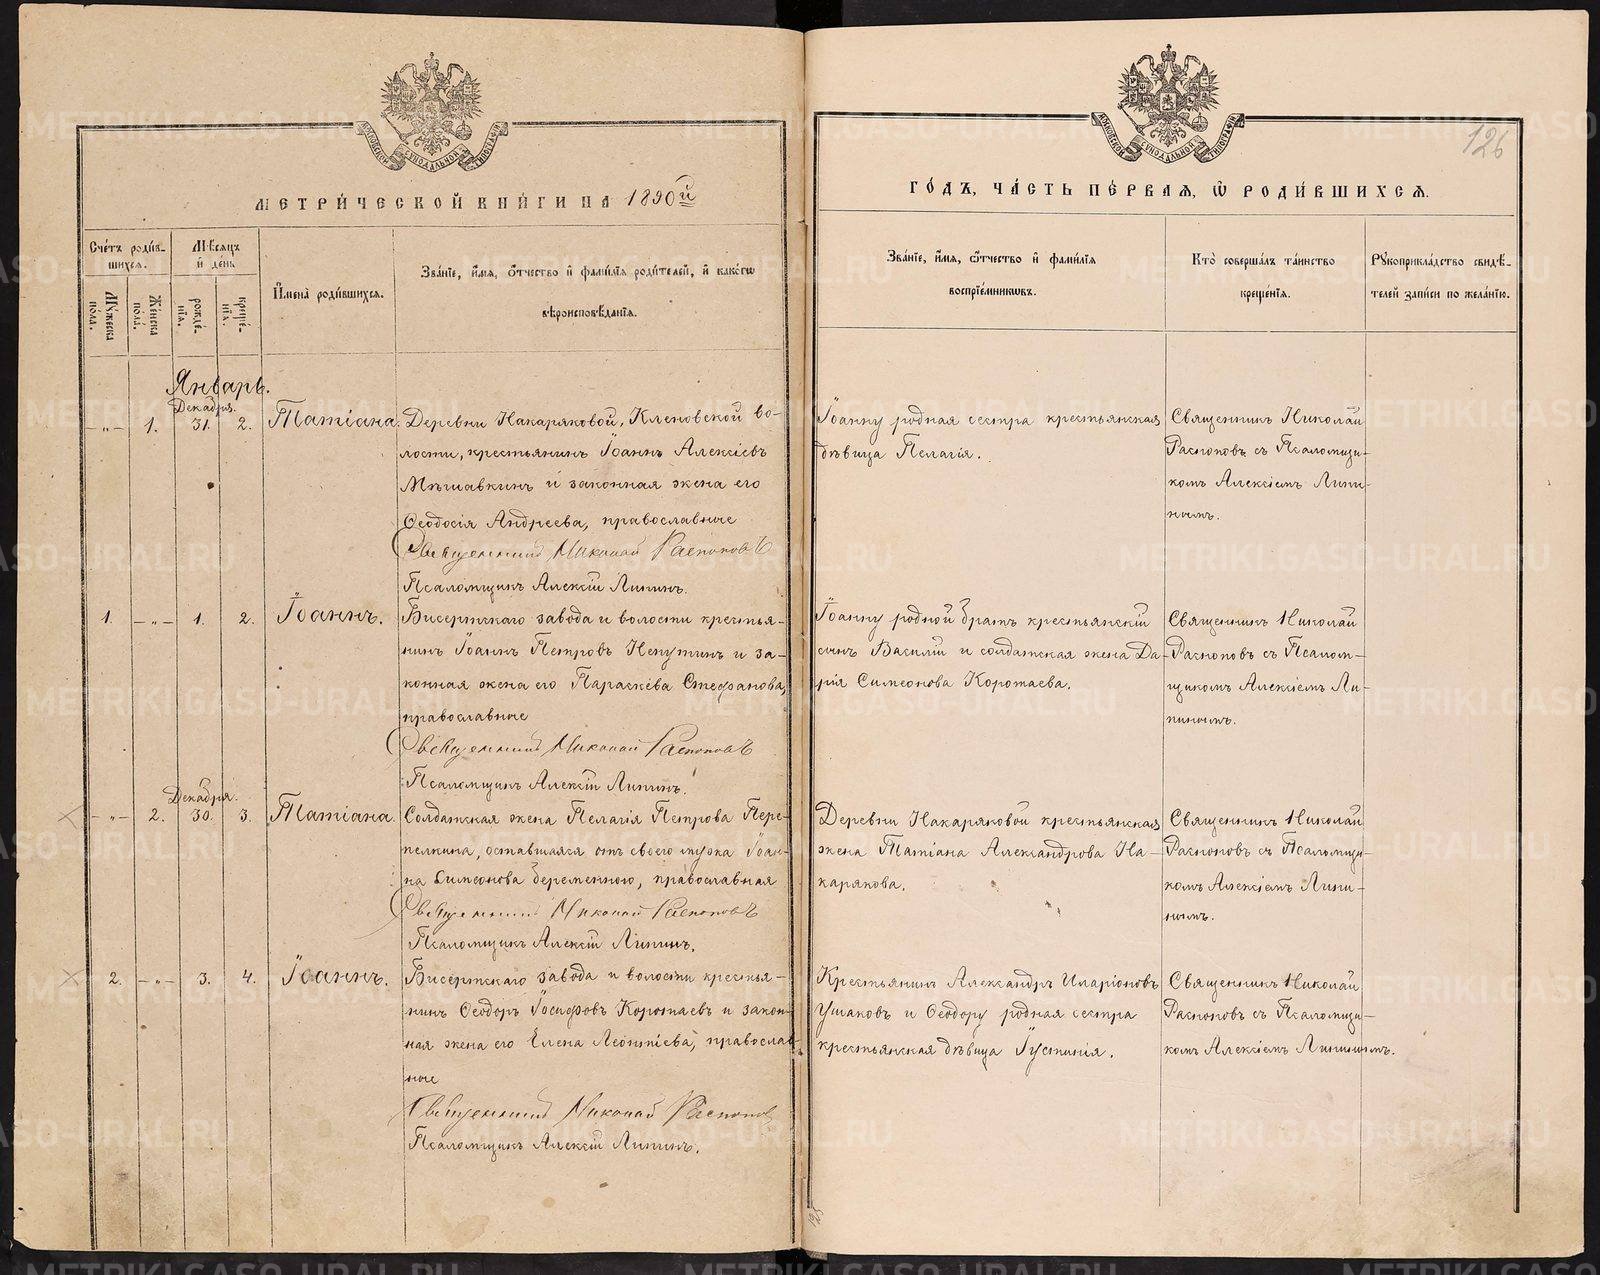 МЕТРИ́ЧЕСКОЙ КНИ́ГИ НА 1890й
Счéтъ роди́в-
шихся.
Мѣ́сяцъ
и де́нь
И҆мена̀ роди́вшихся.
Зва́нїе, и҆́мя, ѻ҆́тчество и҆ фами́лїѧ роди́телей, и҆ како́гѡ
вѣроисповѣ́данїѧ.
Мꙋ́жеска
по́ла.
Же́нска
по́ла.
рожде́-
нїѧ.
креще́-
нїѧ.
Январь.
Декабря.
-„- 1. 31. 2. Татіана. Деревни Накаряковой, Кленовской во-
лости, крестьянинъ Іоаннъ Алексіевъ
Мѣшавкинъ и законная жена его
Ѳеодосія Андреева, православные
Священникъ Николай Распоповъ
Псаломщикъ Алексій Липинъ.
1. -„- 1. 2. Іоаннъ. Бисертскаго завода и волости крестья-
нинъ Іоаннъ Петровъ Непутинъ и за-
конная жена его Параскева Стефанова,
православные
Священникъ Николай Распоповъ
Псаломщикъ Алексій Липинъ.
Декабря.
-„- 2. 30. 3. Татіана. Солдатская жена Пелагія Петрова Пере-
пелкина, оставшаяся отъ своего мужа Іоан-
на Симеонова беременною, православная
Священникъ Николай Распоповъ
Псаломщикъ Алексій Липинъ.
2. -„- 3. 4. Іоаннъ. Бисертскаго завода и волости крестья-
нинъ Ѳеодоръ Іосифовъ Коротаевъ и закон-
ная жена его Елена Леонтіева, православ-
ные
Священникъ Николай Распоповъ
Псаломщикъ Алексій Липинъ.
126
ГО́ДЪ, ЧА́СТЬ ПЕ́РВАЯ, Ѿ РОДИ́ВШИХСЯ.
Зва́нїе, и҆́мя, ѻ҆́тчество и҆ фами́лїѧ
воспрїе́мникѡвъ.
Кто̀ соверша́лъ та́инство
креще́нїѧ.
Рꙋкоприкла́дство свидѣ́-
телей за́писи по жела́нїю.
Іоанну родная сестра крестьянская
дѣвица Пелагія.
Священникъ Николай
Распоповъ съ Псаломщи-
комъ Алексіемъ Липи-
нымъ.
Іоанну родной братъ крестьянскій
сынъ Василій и солдатская жена Да-
рія Симеонова Коротаева.
Священникъ Николай
Распоповъ съ Псалом-
щикомъ Алексіемъ Ли-
пинымъ.
Деревни Накаряковой крестьянская
жена Татіана Александрова На-
карякова.
Священникъ Николай
Распоповъ съ Псаломщи-
комъ Алексіемъ Липи-
нымъ.
Крестьянинъ Александръ Иларіоновъ
Ушаковъ и Ѳеодору родная сестра
крестьянская дѣвица Іустинія.
Священникъ Николай
Распоповъ съ Псаломщи-
комъ Алексіемъ Липинымъ.
METRIKI.GASO-URAL.RU